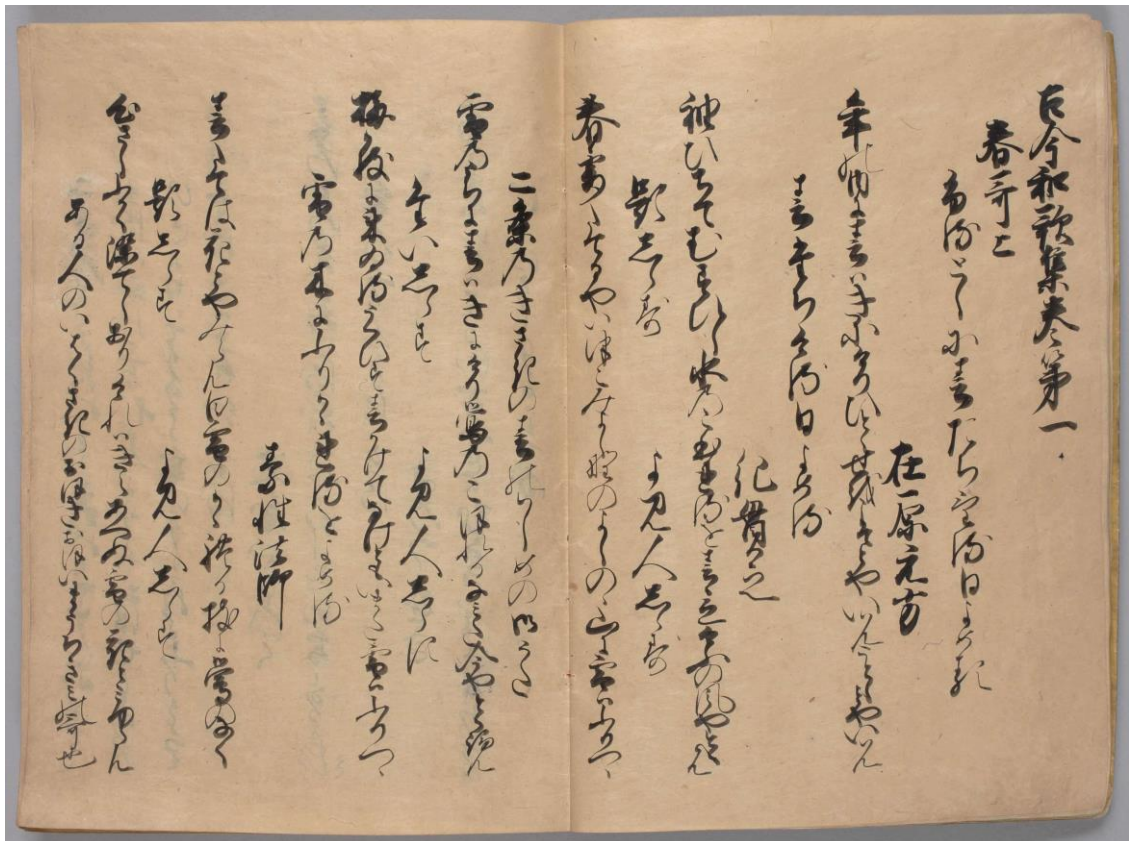 古今和歌集巻第一
春哥上
ふるとしに春たちける日よめる
在原元方
年の内に春はきにけりひとゝせをこそとやいはんことしとやいはん
春たちける日よめる
紀貫之
袖ひちてむすひし水のこほれるを春立けふの風やとくらん
題しらす
よみ人しらす
春霞たてるやいつこみよし野のよしのゝ山に雪はふりつゝ
二条のきさきの春のはしめの御うた
雪の内に春はきにけり鶯のこほれるなみた今やとくらん
たいしらす
よみ人しらす
梅かえにきゐるうくひす春かけてなけともいまた雪はふりつゝ
雪の木にふりかゝれるをよめる
素性法師
春たては花とやみらん白雪のかゝれる枝に鶯のなく
題しらす
よみ人しらす
心さしふかく染てしおりけれはきえあへぬ雪の花とみゆらん
ある人のいはくさきのおほきおほいまうちきみの哥也